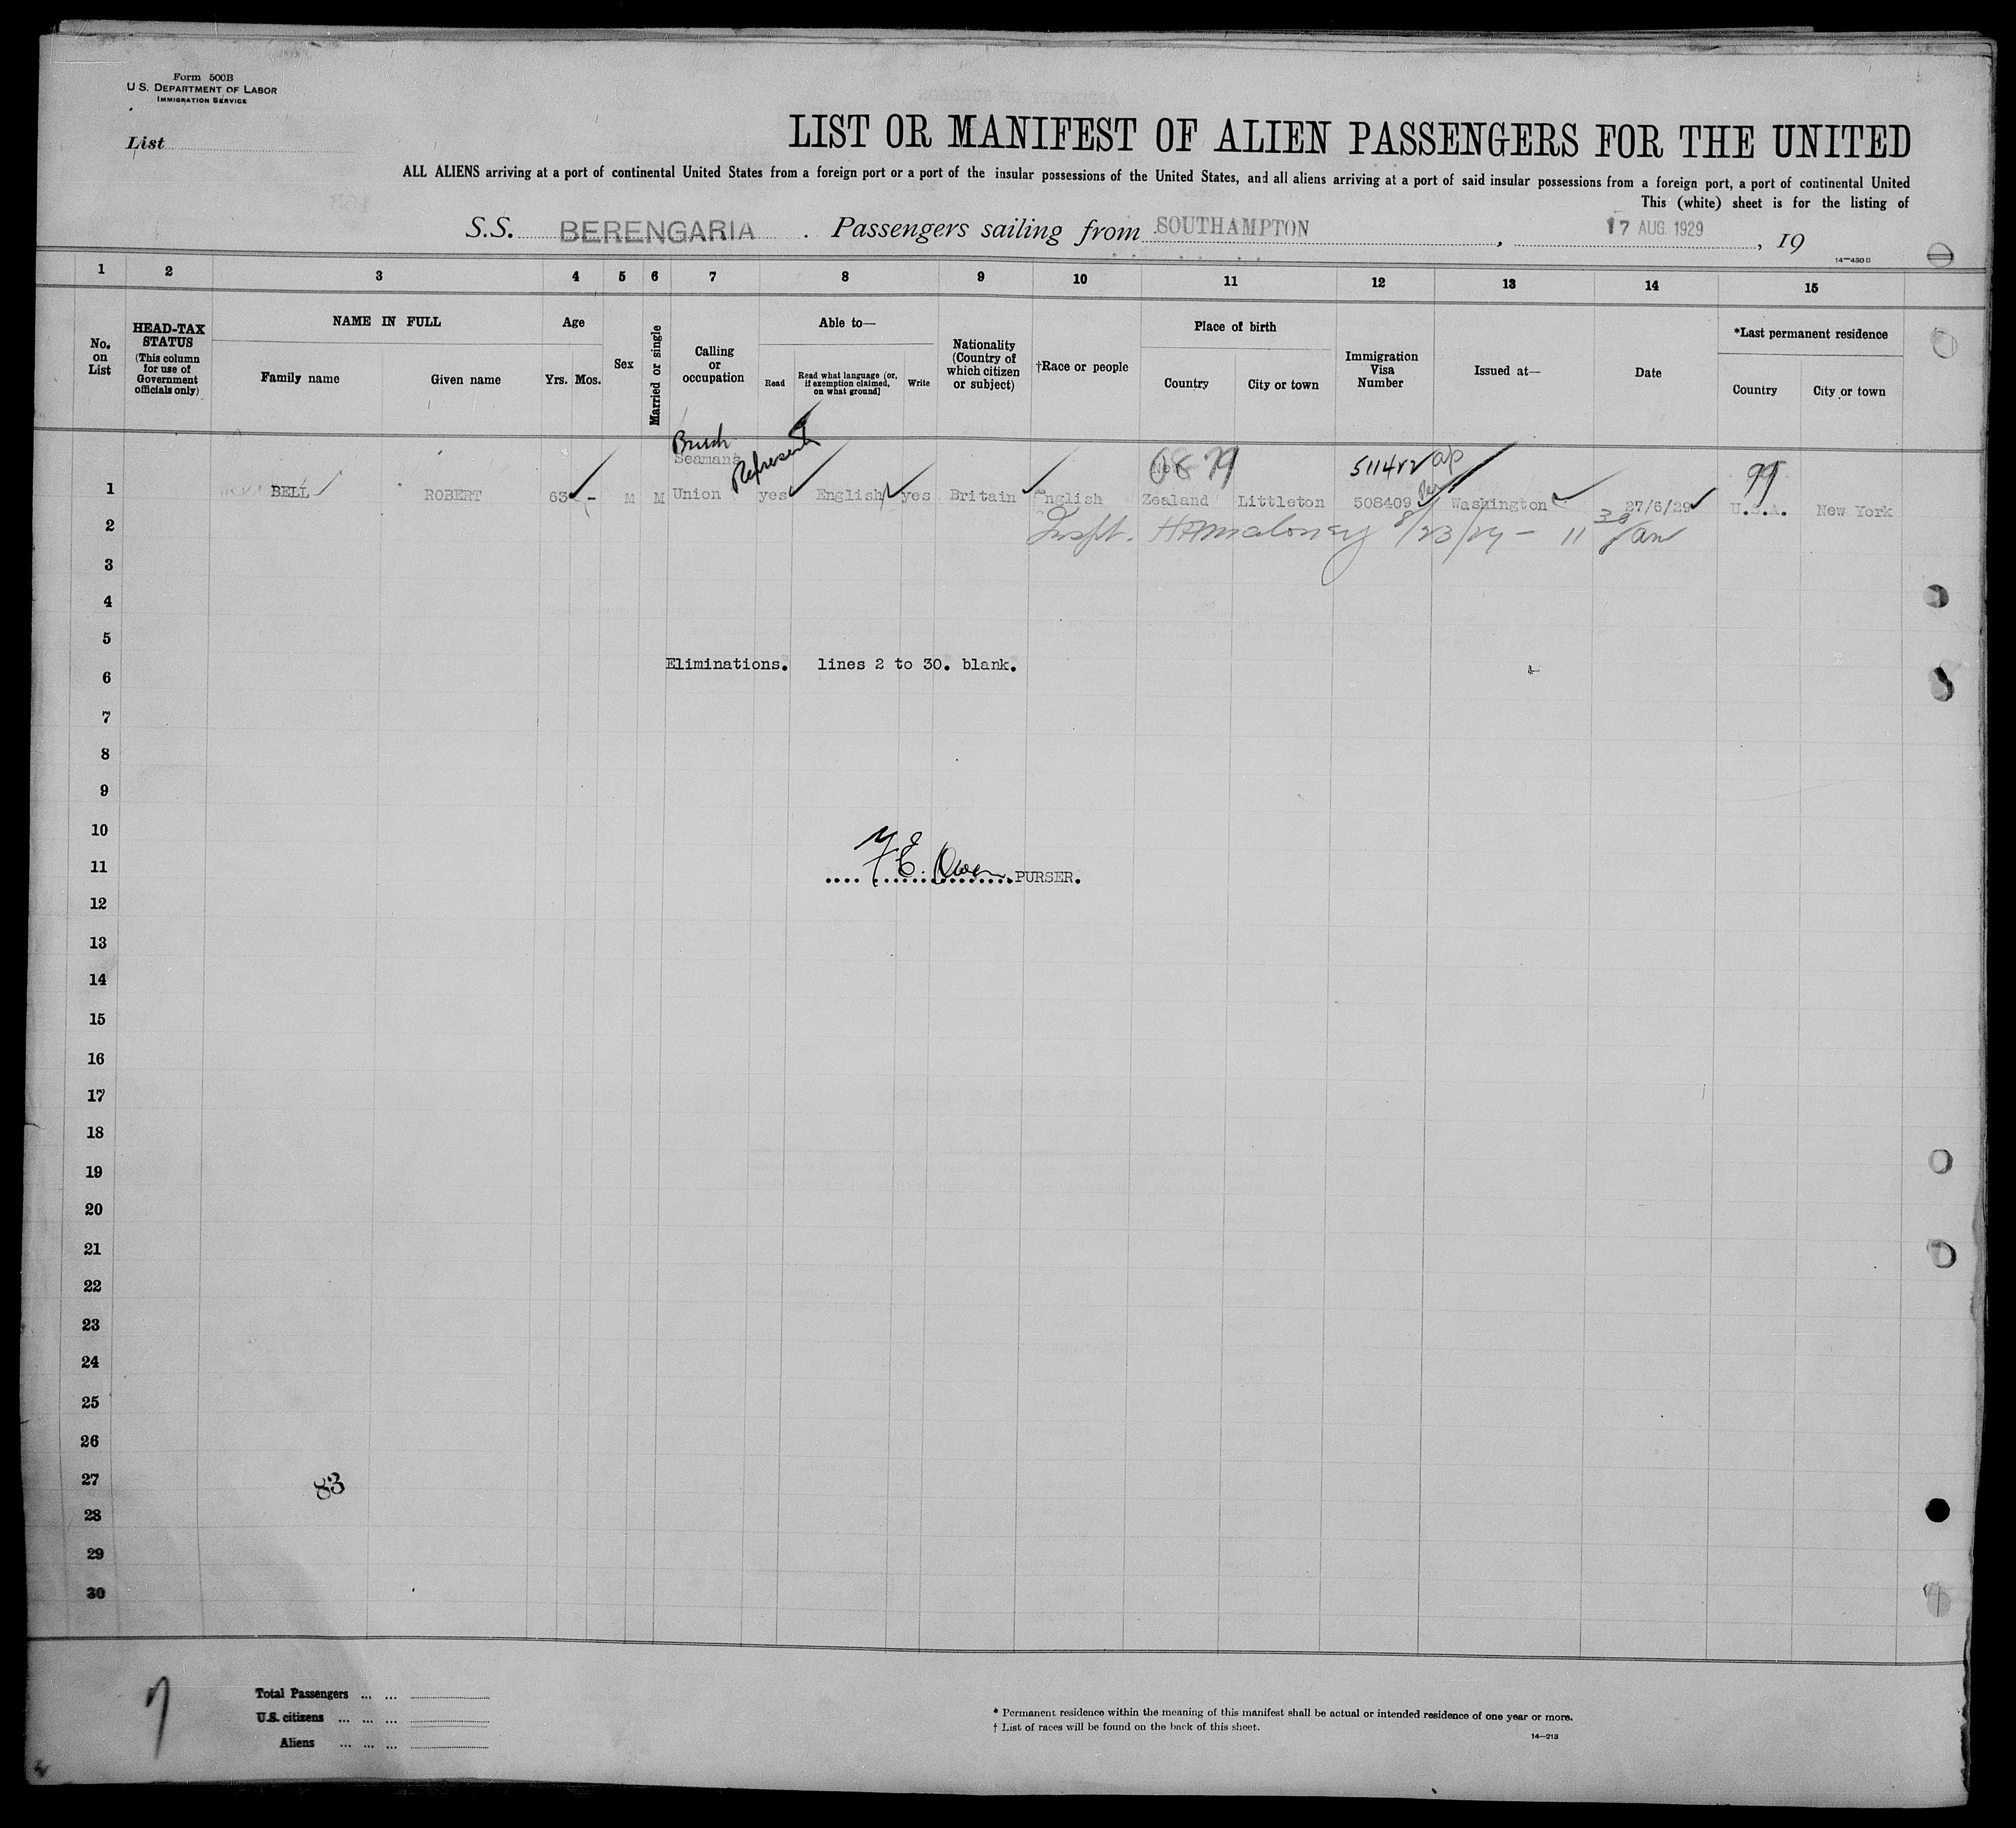 Form 500B
U.S. DEPARTMENT OF LABOR
IMMIGRATION SERVICE
List
LIST OR MANIFEST OF ALIEN PASSENGERS FOR THE UNITED
ALL ALIENS arriving at a port of continental United States from a foreign port or a port of the insular possessions of the United States, and all aliens arriving at a port of said insular possessions from a foreign port, a port of continental United
This (white) sheet is for the listing of
S.S. BERENGARIA . Passengers sailing from SOUTHAMPTON , 17 AUG 1929 , 19
14—430 B
1 2 3 4 5 6 7 8 9 10 11 12 13 14 15
No. on List
HEAD-TAX STATUS
(This column for use of Government officials only)
NAME IN FULL
Family name Given name
Age
Yrs. Mos.
Sex
Married or single
Calling or occupation
Able to—
Read
Read what language [or, if exemption claimed, on what ground]
Write
Nationality (Country of which citizen or subject)
†Race or people
Place of birth
Country City or town
Immigration Visa Number
Issued at—
Date
*Last permanent residence
Country City or town
Seamans Represent
1 BELL ROBERT 63 - M M Union yes English yes Britain English Zealand Littleton 508409 Washington 27/6/29 U.S.A. New York
99
2 Inspt. 8/23/29 — 11 30/am
3
4
5
Eliminations. lines 2 to 30. blank.
6
7
8
9
10
11 F E. Owen PURSER.
12
13
14
15
16
17
18
19
20
21
22
23
24
25
26
27
83
28
29
30
Total Passengers ... ...
U.S. citizens ... ... ...
Aliens ... ... ...
* Permanent residence within the meaning of this manifest shall be actual or intended residence of one year or more.
† List of races will be found on the back of this sheet.
14—213